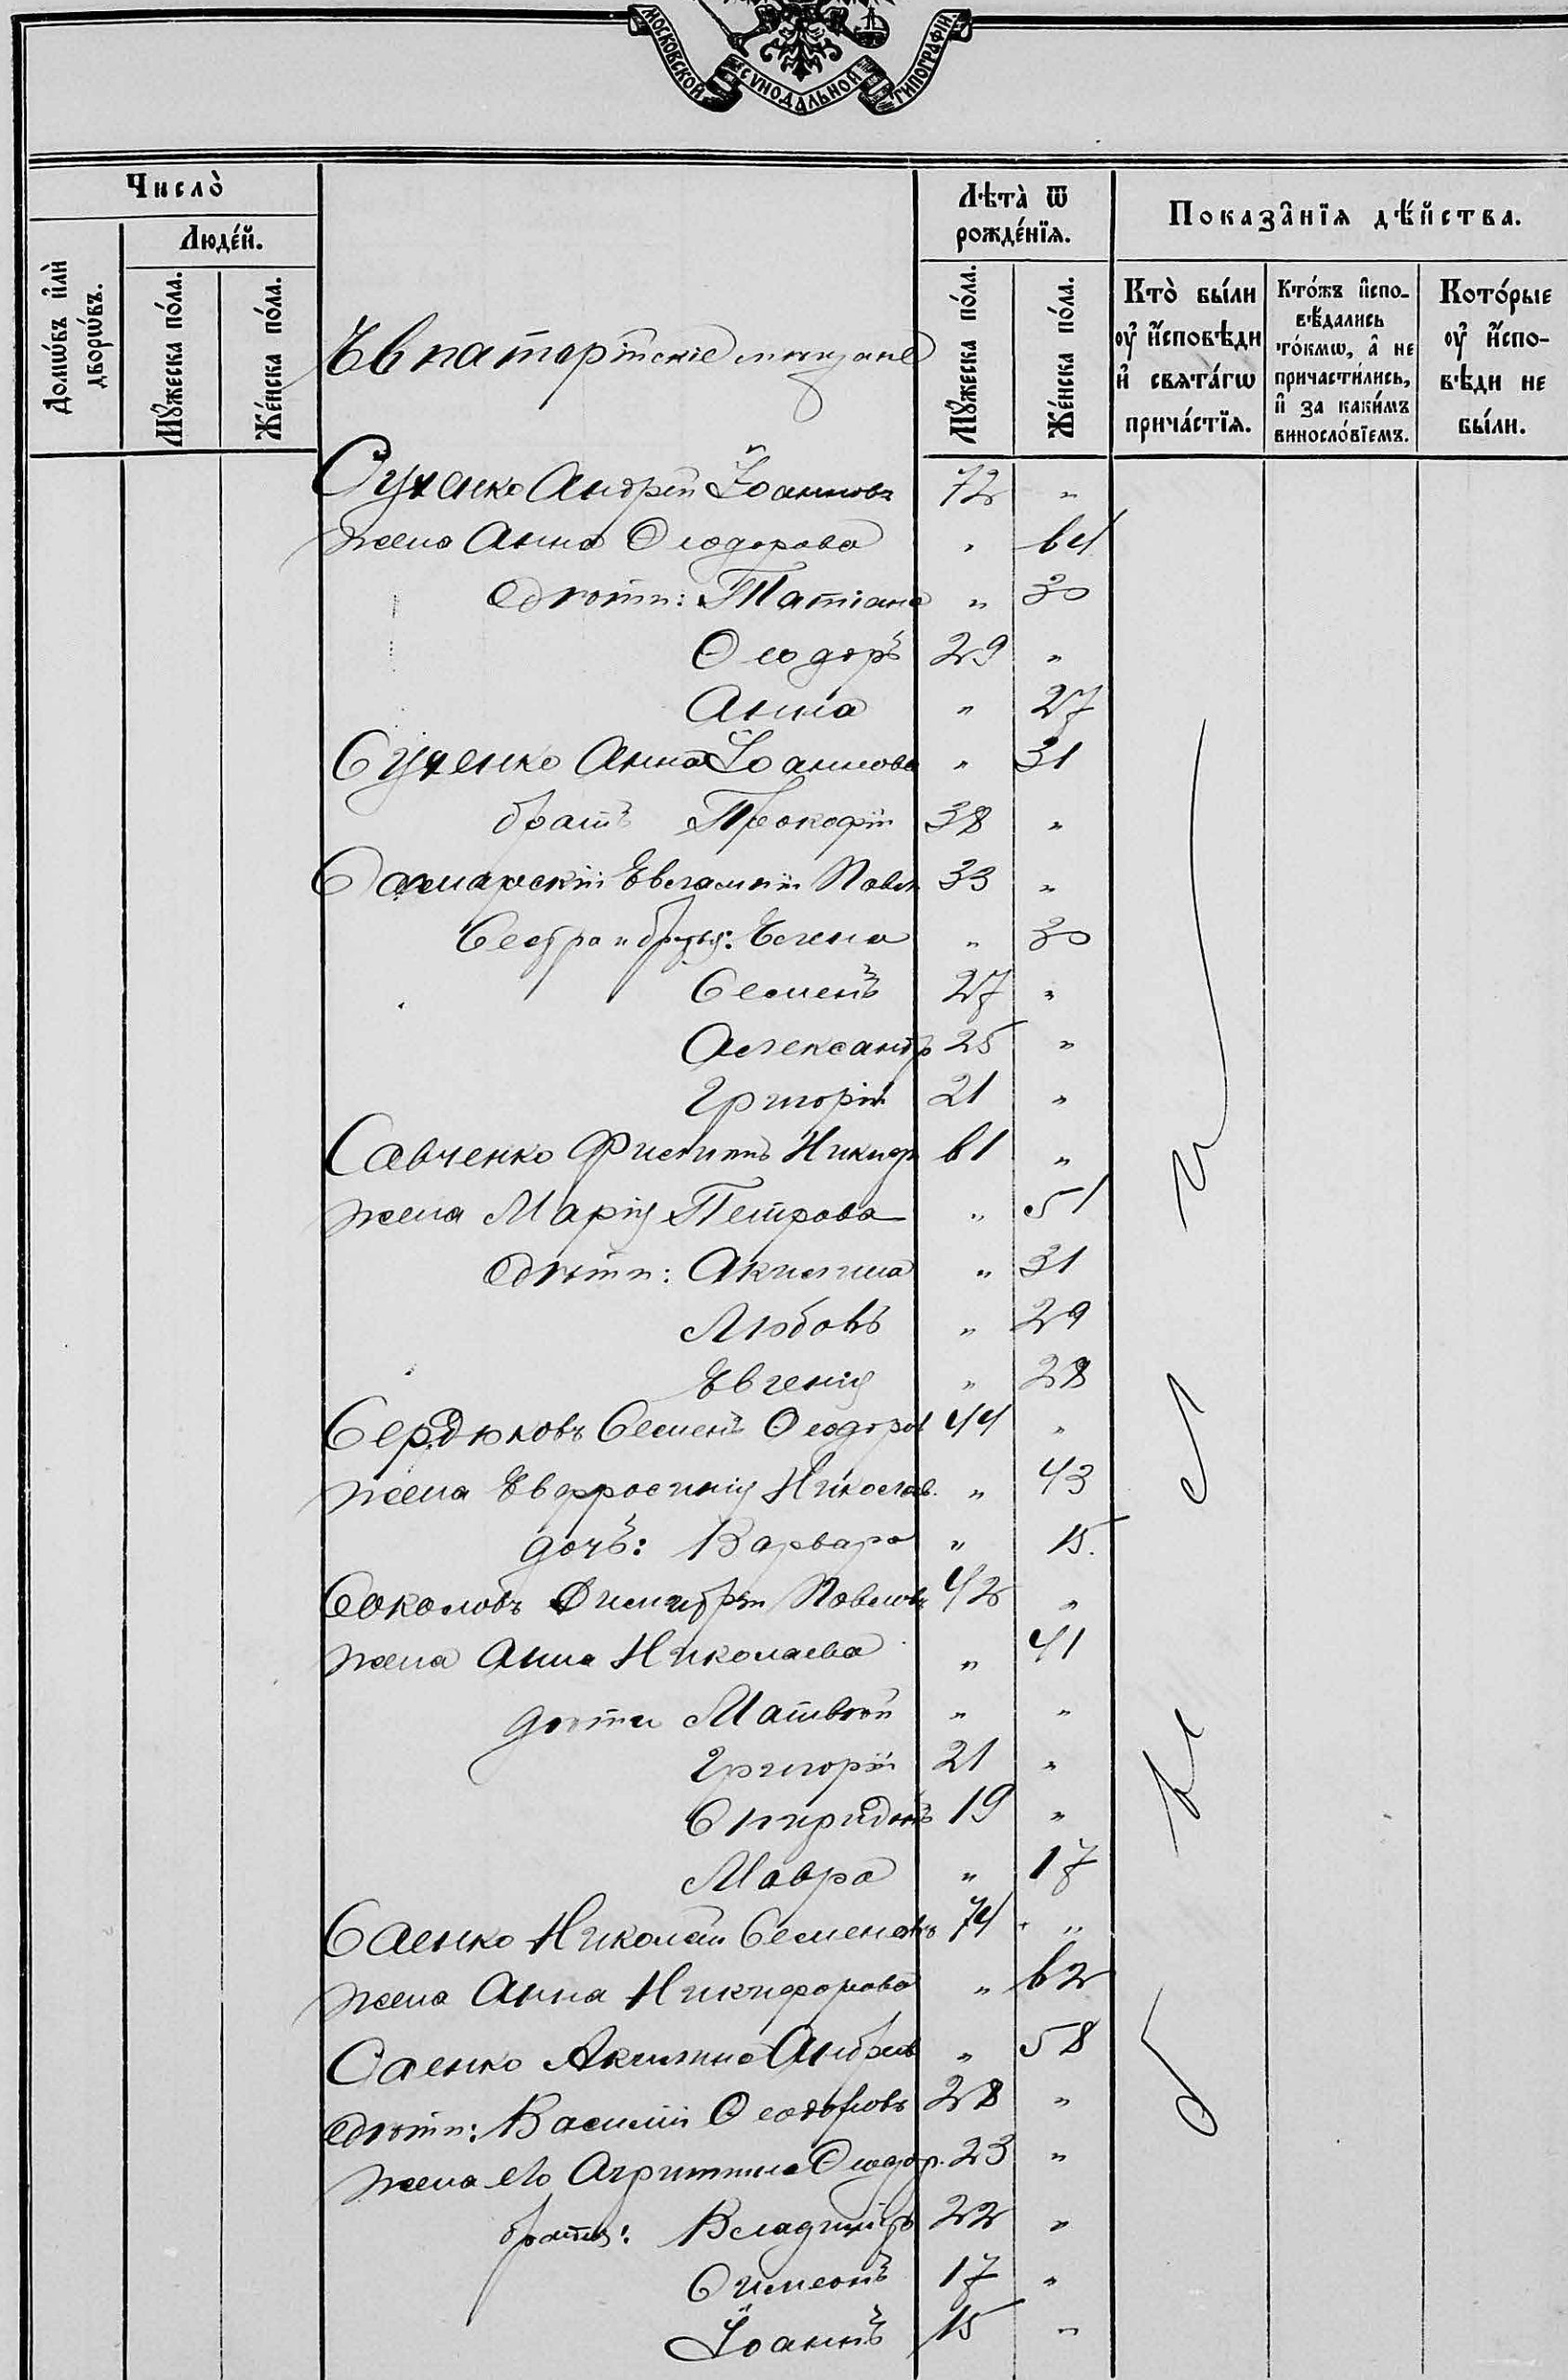 МОСКОВСКОЙ СѴНОДАЛЬНОЙ ТИПОГРАФІИ
Число̀
Домѡ́въ и҆лѝ дворѡ́въ.
Люде́й.
Мꙋ́жеска по́ла.
Же́нска по́ла.
Лѣта̀ ѿ рожде́нїѧ.
Мꙋ́жеска по́ла.
Же́нска по́ла.
Показа̑нїѧ дѣ́йства.
Кто̀ бы́ли оу҆ и҆сповѣди и҆ свѧта́гѡ прича́стїѧ.
Кто́жъ и҆сповѣ́дались то́кмѡ, а҆ не причасти́лись, и҆ за каки́мъ винословїемъ.
Кото́рые оу҆ и҆сповѣди не бы́ли.
Евпаторійскіе мѣщане
Сученко Андрей Іоанновъ 72 "
жена Анна Ѳеодорова " 64
дѣти: Татіана " 30
Ѳеодоръ 29 "
Анна " 27
Сученко Анна Іоаннова " 31
братъ Прокофій 38 "
Евгеній Павл 33 "
Сестра и братья: Елена " 30
Семенъ 27 "
Александръ 25 "
Григорій 21 "
Савченко Филиппъ Никиф 61 "
жена Марія Петрова " 51
дѣти: Акилина " 31
Любовь " 29
Евгенія " 28
Сердюковъ Семенъ Ѳеодоров 44 "
жена Евфросинія Николаев. " 43
дочь: Варвара " 15.
Соколовъ Димитрій Павловъ 42 "
жена Анна Николаева " 41
дѣти Матвѣй " "
Григорій 21 "
Спиридонъ 19 "
Мавра " 17
Саенко Николай Семеновъ 74 "
жена Анна Никифорова " 62
Саенко Акилина Андреев " 58
дѣти: Василій Ѳеодоровъ 28 "
жена его Агриппина Ѳеодор. 23 "
братья: Владиміръ 22 "
Симеонъ 17 "
Іоаннъ 15 "
были